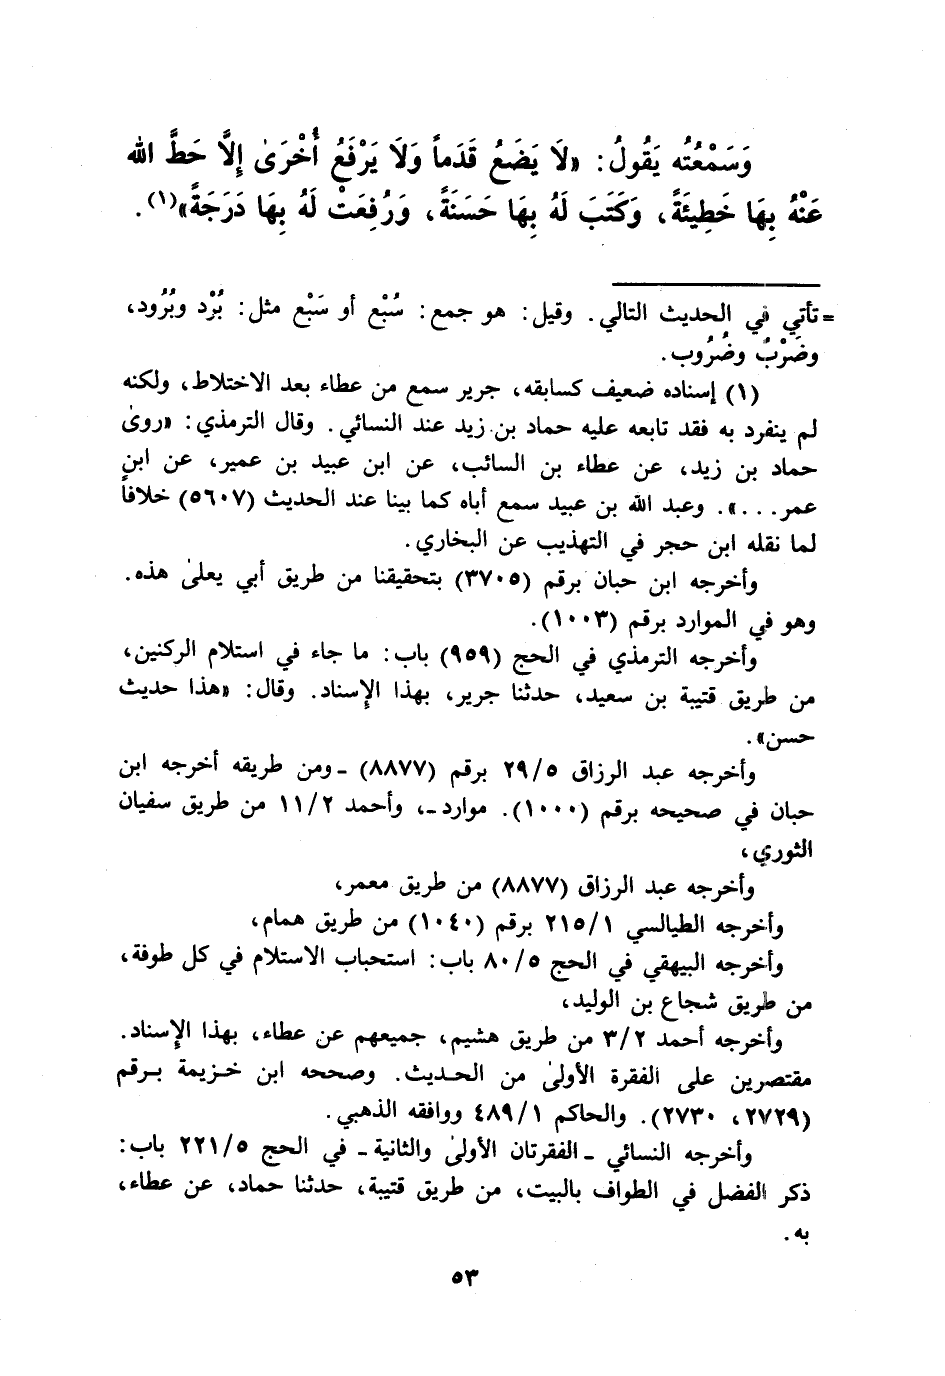 وَسَمْعُتُه يَقُولُ: «لَا يَضَعُ قَدَماً وَلَا يَرْفَعُ أُخْرَىٰ إِلَّا حَطَّ الله
عَنْهُ بِهَا خَطِيئَةً، وَكَتَبَ لَهُ بِهَا حَسَنَةً، وَرُفِعَتْ لَهُ بِهَا دَرَجَةً»(١).
= تأتي في الحديث التالي. وقيل: هو جمع: سُبْع أو سَبْع مثل: بُرْد وبُرُود،
وضَرْبٌ وضُرُوب.
(١) إسناده ضعيف كسابقه، جرير سمع من عطاء بعد الاختلاط، ولكنه
لم ينفرد به فقد تابعه عليه حماد بن زيد عند النسائي. وقال الترمذي: «روىٰ
حماد بن زيد، عن عطاء بن السائب، عن ابن عبيد بن عمير، عن ابن
عمر...». وعبد الله بن عبيد سمع أباه كما بينا عند الحديث (٥٦٠٧) خلافاً
لما نقله ابن حجر في التهذيب عن البخاري.
وأخرجه ابن حبان برقم (٣٧٠٥) بتحقيقنا من طريق أبي يعلىٰ هذه.
وهو في الموارد برقم (١٠٠٣).
وأخرجه الترمذي في الحج (٩٥٩) باب: ما جاء في استلام الركنين،
من طريق قتيبة بن سعيد، حدثنا جرير، بهذا الإسناد. وقال: «هذا حديث
حسن».
وأخرجه عبد الرزاق ٢٩/٥ برقم (٨٨٧٧) ـ ومن طريقه أخرجه ابن
حبان في صحيحه برقم (١٠٠٠). موارد ـ، وأحمد ١١/٢ من طريق سفيان
الثوري،
وأخرجه عبد الرزاق (٨٨٧٧) من طريق معمر،
وأخرجه الطيالسي ٢١٥/١ برقم (١٠٤٠) من طريق همام،
وأخرجه البيهقي في الحج ٨٠/٥ باب: استحباب الاستلام في كل طوفة،
من طريق شجاع بن الوليد،
وأخرجه أحمد ٣/٢ من طريق هشيم، جميعهم عن عطاء، بهذا الإسناد.
مقتصرين على الفقرة الأولىٰ من الحديث. وصححه ابن خزيمة برقم
(٢٧٢٩، ٢٧٣٠). والحاكم ٤٨٩/١ ووافقه الذهبي.
وأخرجه النسائي ـ الفقرتان الأولىٰ والثانية ـ في الحج ٢٢١/٥ باب:
ذكر الفضل في الطواف بالبيت، من طريق قتيبة، حدثنا حماد، عن عطاء،
به.
٥٣